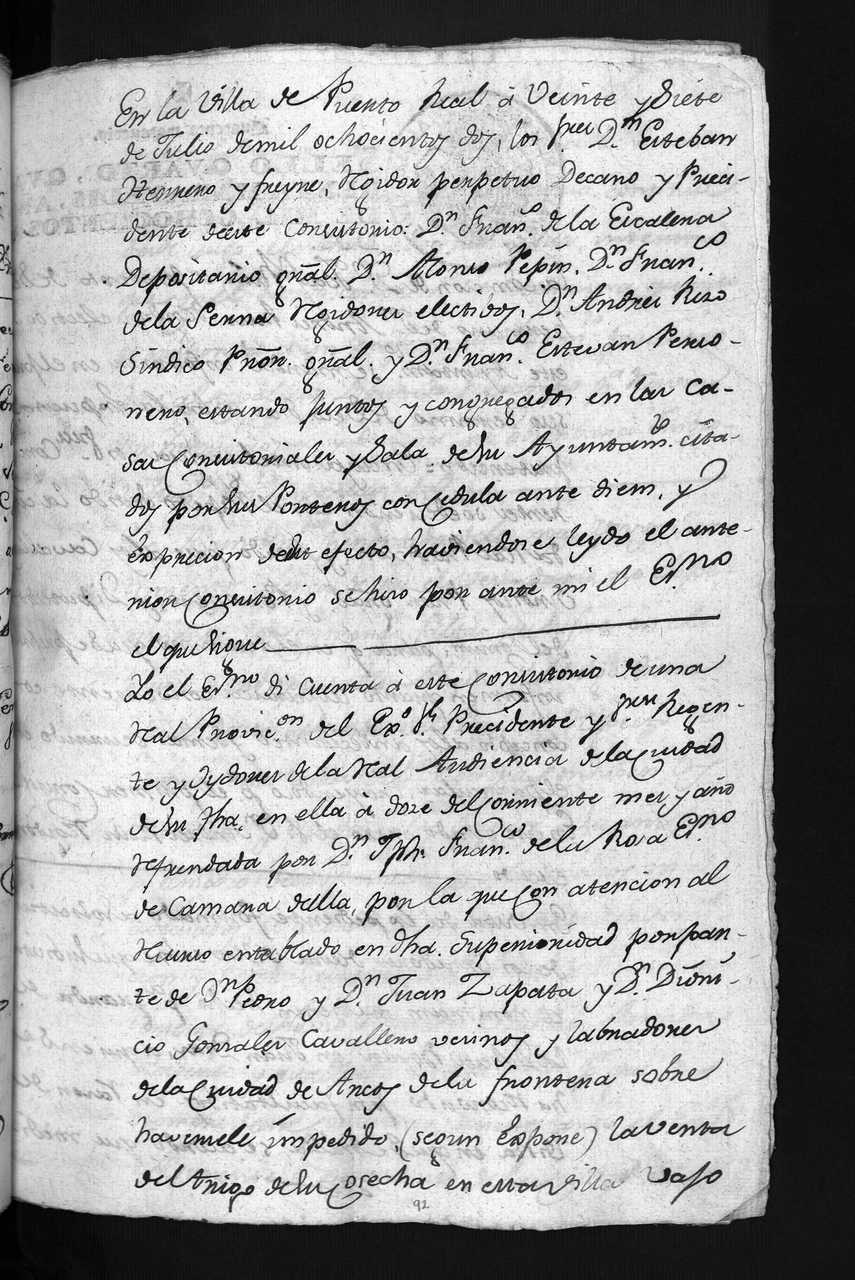 En la Villa de Puerto Real à Veinte y Siete
de Julio de mil ochocientos dos, los Sres. Dn. Esteban
Herrero y freyre, Rejidor perpetuo Decano y Preci-
dente deeste Consistorio: Dn. Franco. de la Escalera
Depositario gñal. Dn. Alonso Pepin. Dn. Franco.
de la Serna Rejidores electivos, Dn. Andres Rizo
Síndico Prõr. gñal. y Dn. Franco. Estevan Perso-
nero, estando juntos y congregados en las Ca-
sas Consistoriales y Sala de su Ayuntamto. cita-
dos por sus Porteros con Cedula ante diem, y
exprecion de su efecto, haviendose leydo el ante-
rior Consistorio se hizo por ante mi el Essno
el que sigue
Yo el Essno di cuenta à este Consistorio de una
Real Provicon. del Exo. Sr. Precidente y Sres. Regen-
te y Oydores de la Real Audiencia de la Ciudad
de su fha. en ella à doze del Corriente mes y año
Refrendada por Dn. Franco. de la Rosa Essno
de Camara della, por la que con atencion al
Recurso entablado en dha. Superioridad por par-
te de Dn. Pedro y Dn. Juan Zapata y Dn. Dioni-
cio Gonzales Cavallero vecinos y labradores
de la Ciudad de Arcos de la frontera sobre
haverseles impedido, (segun expone) la venta
del trigo de su Cosecha en esta Villa vajo
92